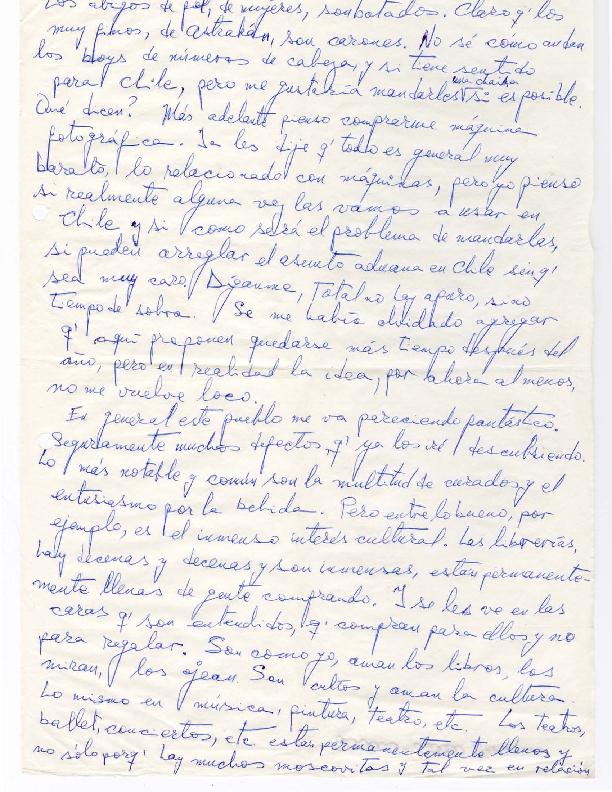 Los abrigos de piel, de mujeres, son botados. Claro q' los
muy finos, de astrakán, son carones. No sé cómo andan
los boys de números de cabeza, y si tiene sentido
para Chile, pero me gustaría mandarles una chaska si es posible.
Qué dicen? Más adelante pienso comprarme máquina
fotográfica. Ya les dije q' todo es general muy
barato, lo relacionado con máquinas, pero yo pienso
si realmente alguna vez las vamos a usar en
Chile y si como será el problema de mandarlas,
si pueden arreglar el asunto aduana en Chile sin q'
sea muy caro. Díganme, Total no hay apuro, sino
tiempo de sobra. Se me había olvidado agregar
q' aquí proponen quedarse más tiempo después del
año, pero en realidad la idea, por ahora al menos,
no me vuelve loco.
En general este pueblo me va pareciendo fantástico.
Seguramente muchos defectos, q' ya los iré descubriendo.
Lo más notable y común son la multitud de curados y el
entusiasmo por la bebida. Pero entre lo bueno, por
ejemplo, es el inmenso interés cultural. Las librerías,
hay decenas y decenas y son inmensas, están permanente-
mente llenas de gente comprando. Y se les ve en las
caras q' son entendidos, q' compran para ellos y no
para regalar. Son como yo, aman los libros, los
miran, los ojean. Son cultos y aman la cultura.
Lo mismo en música, pintura, teatro, etc. Los teatros,
ballet, conciertos, etc. están permanentemente llenos y
no sólo porq' hay muchos moscovitas y tal vez en relación